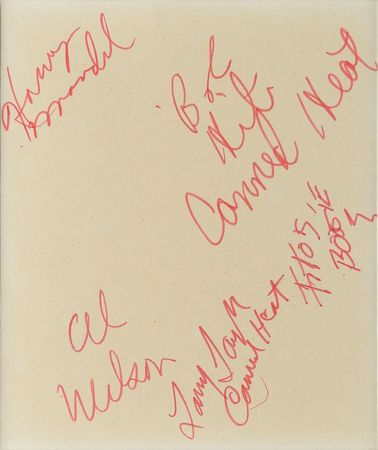 Harvey
Mandel
Bob
Hite
Canned Heat
Fito's
Boogie
Al
Wilson
Larry Taylor
Canned Heat